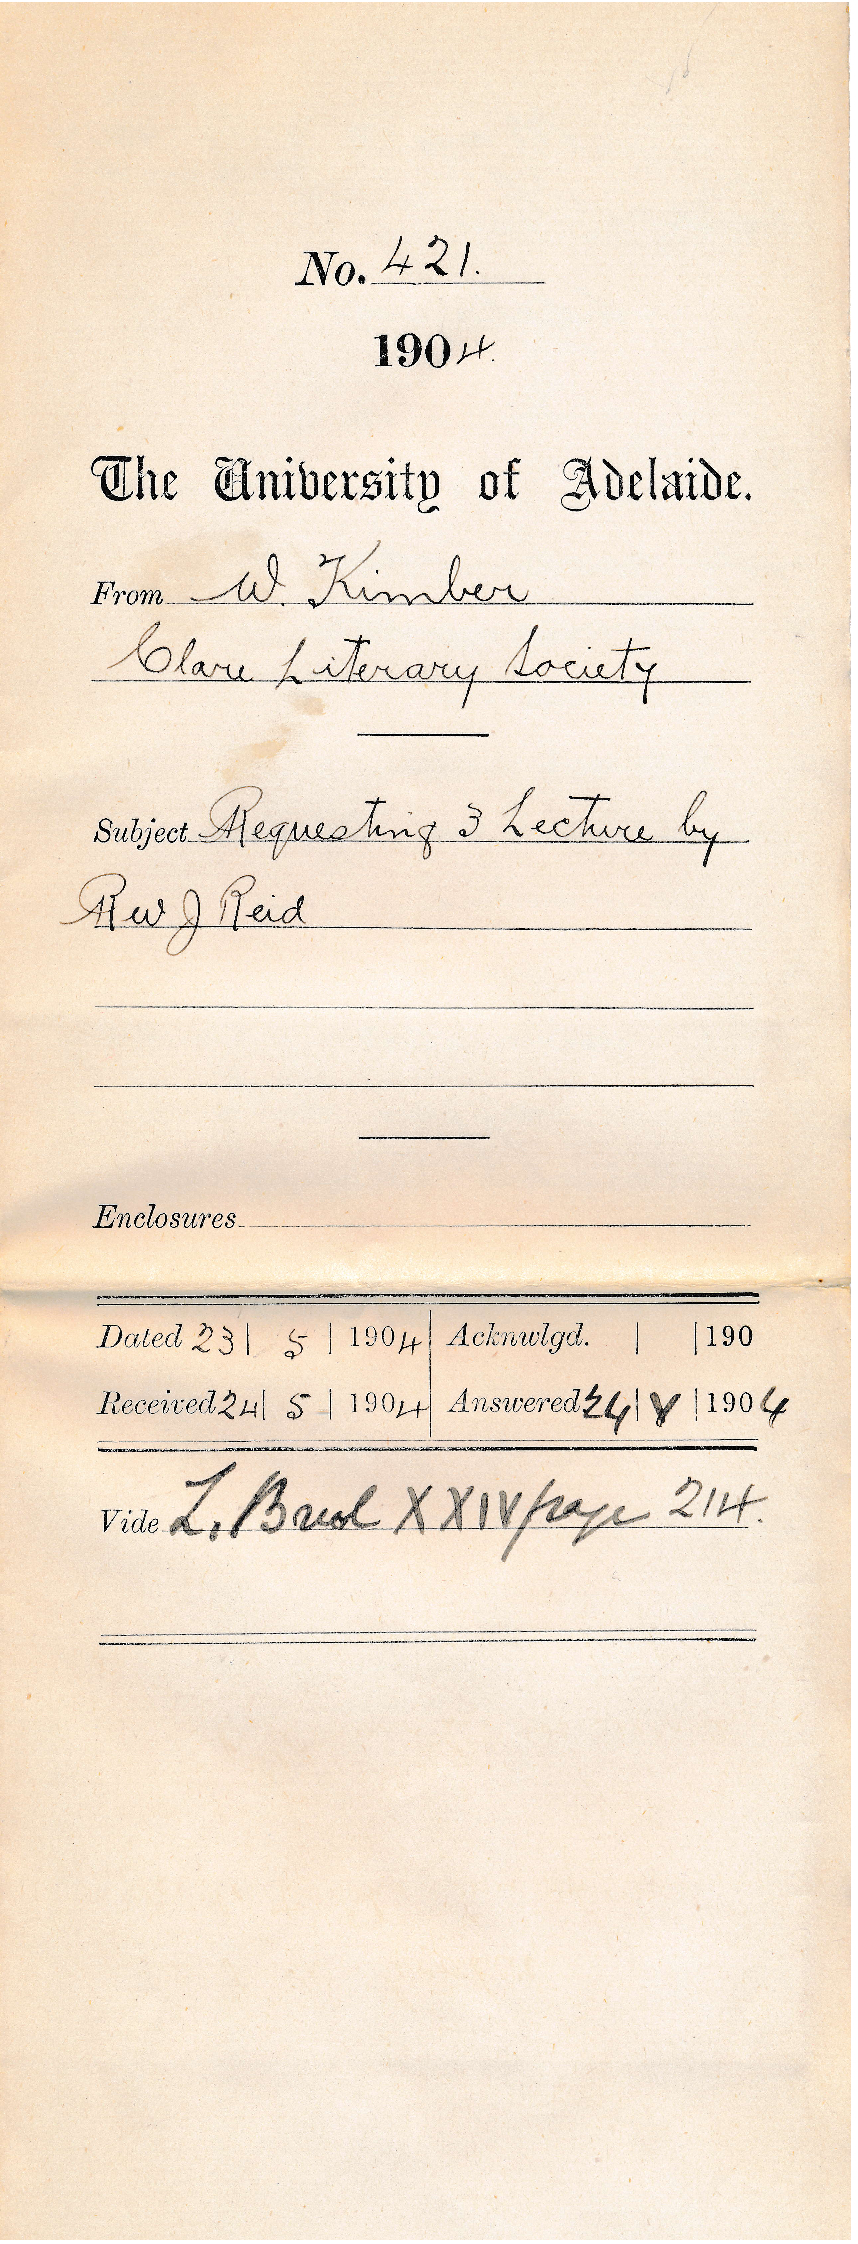 No. 421.
1904.
The University of Adelaide.
From W. Kimber
Clare Literary Society
Subject Requesting 3 Lecture by
Rev J Reid
Enclosures
Dated 23 | 5 | 1904 | Acknwlgd. | | 190
Received 24 | 5 | 1904 | Answered 24 | V | 1904
Vide L. Book XXIV page 214.